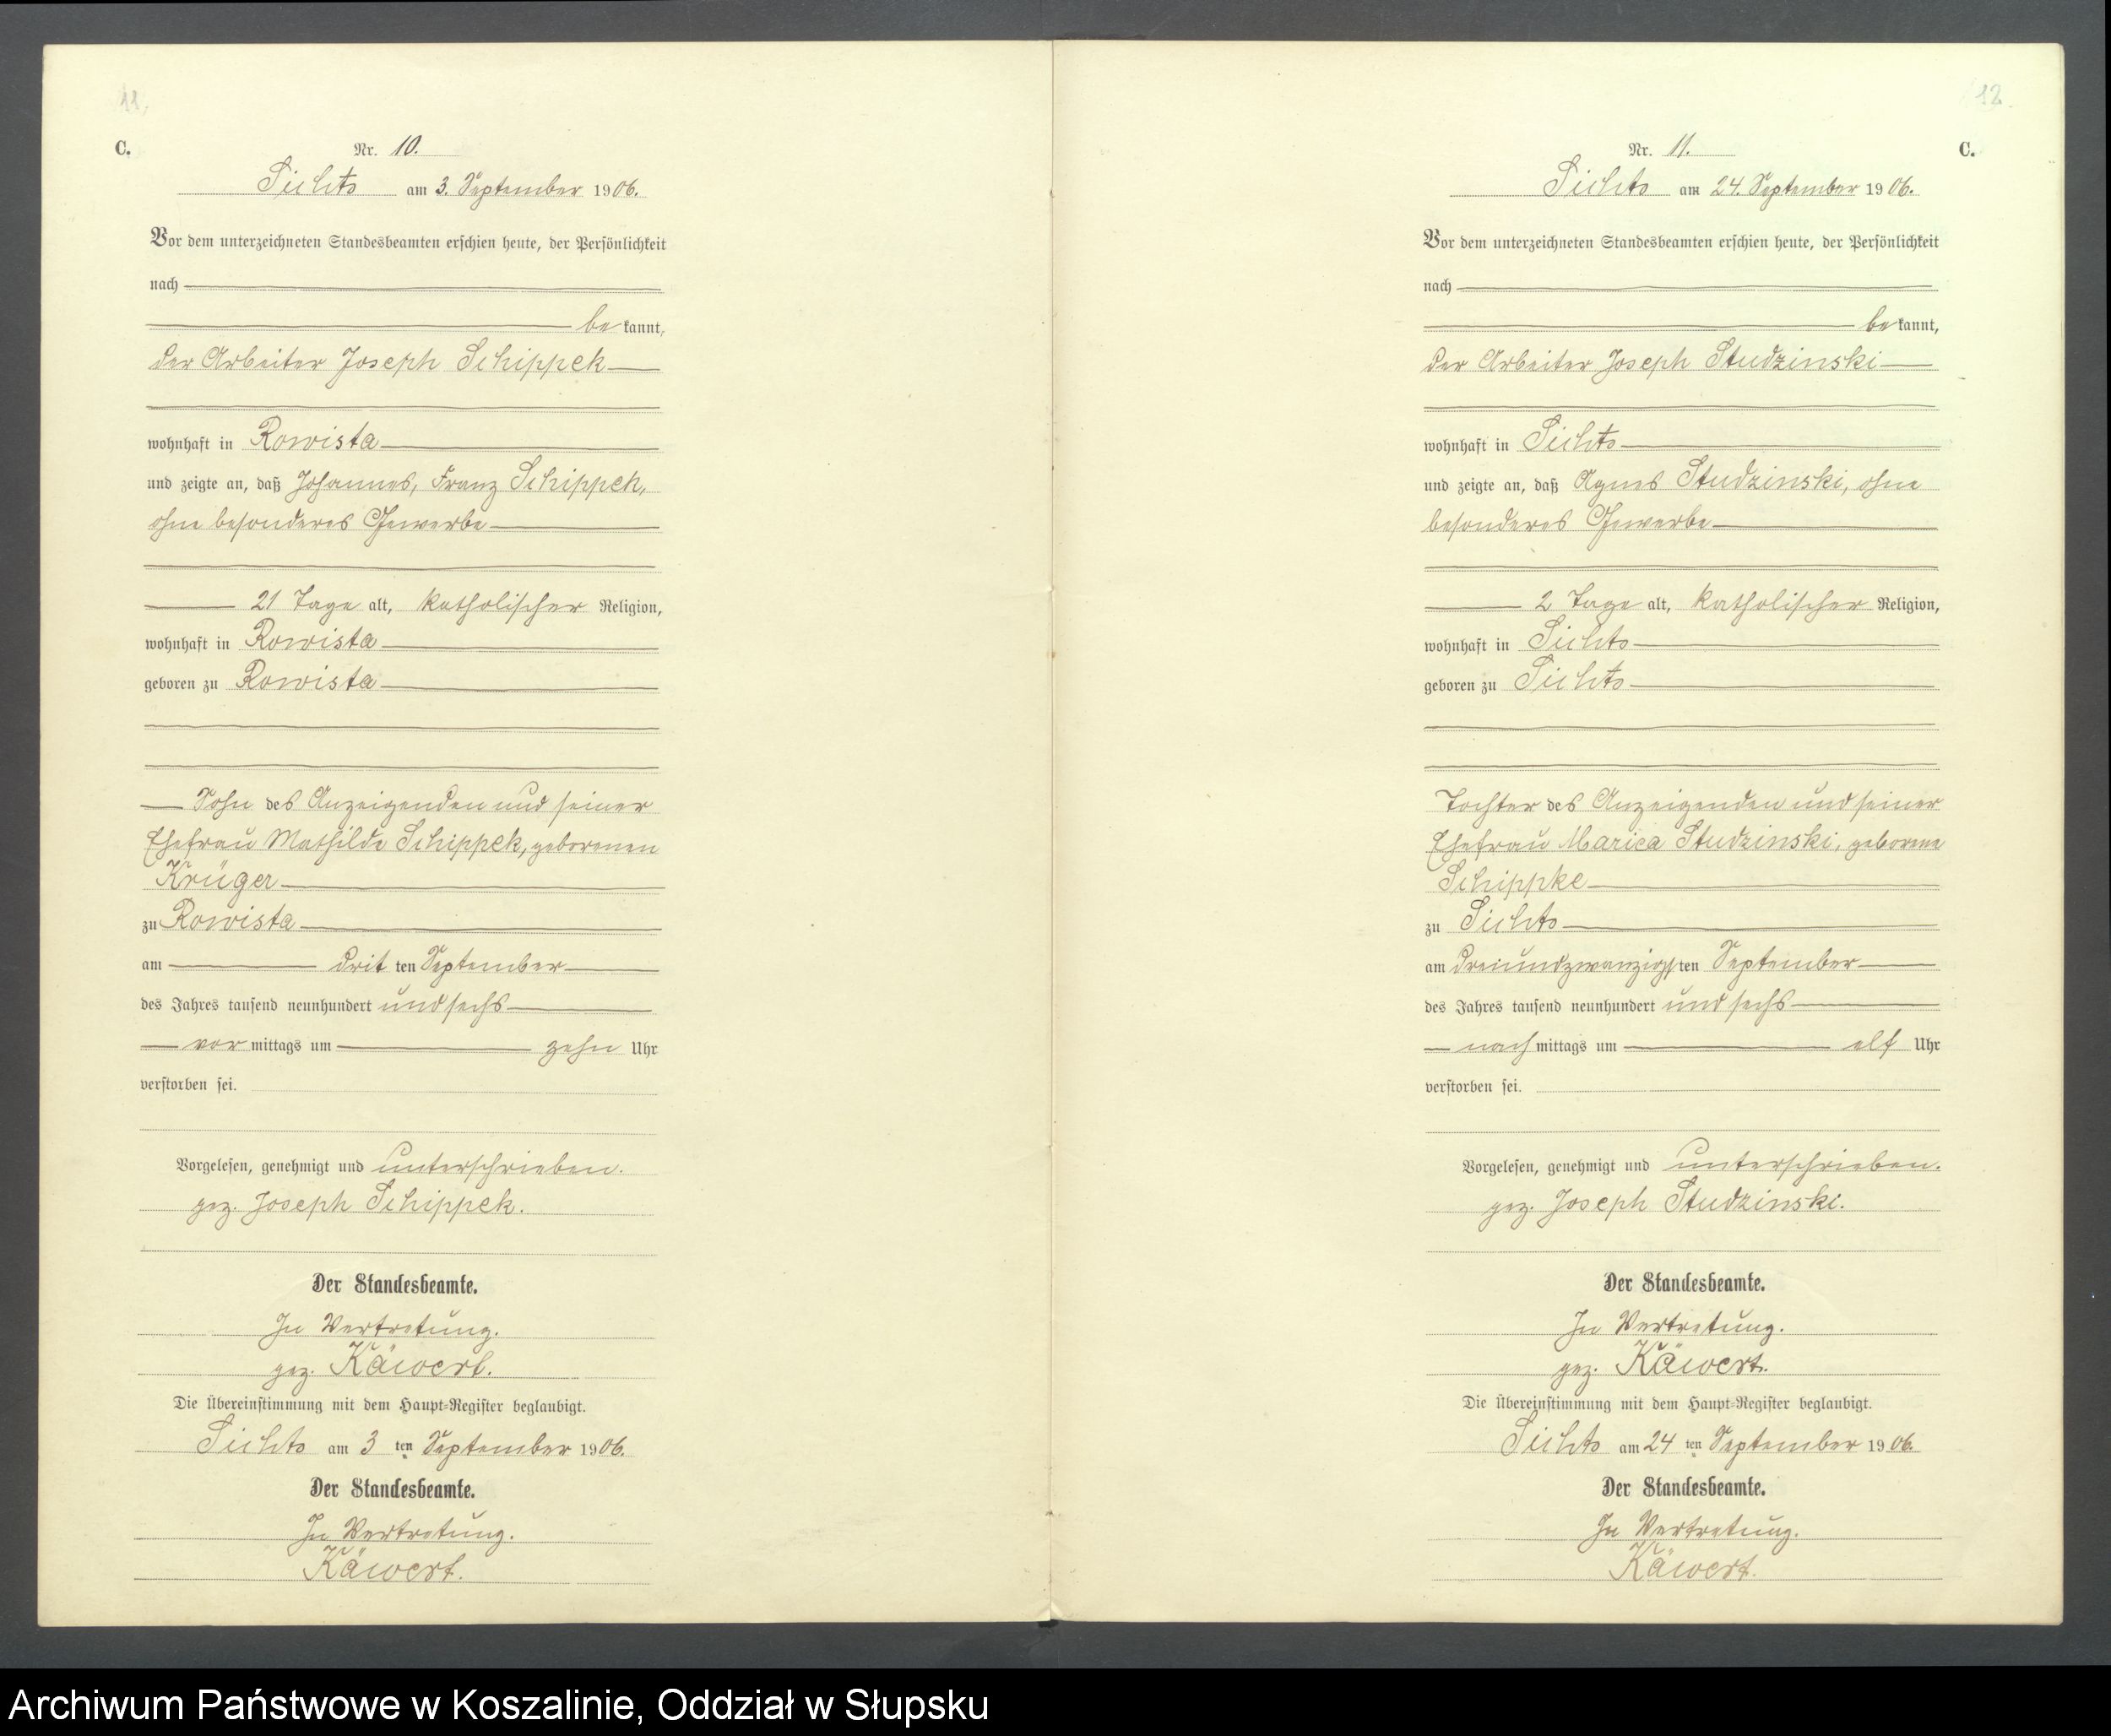 11.
C.
Nr. 10.
Sichts am 3. September 1906.
Vor dem unterzeichneten Standesbeamten erschien heute, der Persönlichkeit
nach
be kannt,
der Arbeiter Joseph Schippek
wohnhaft in Rowista
und zeigte an, daß Johannes, Franz Schippek,
ohne besonderes Gewerbe
21 Tage alt, katholischer Religion,
wohnhaft in Rowista
geboren zu Rowista
Sohn des Anzeigenden und seiner
Ehefrau Mathilde Schippek, geborenen
Krüger
zu Rowista
am drit ten September
des Jahres tausend neunhundert und sechs
vor mittags um zehn Uhr
verstorben sei.
Vorgelesen, genehmigt und unterschrieben.
gez. Joseph Schippek.
Der Standesbeamte.
In Vertretung.
gez. Käwert.
Die Übereinstimmung mit dem Haupt-Register beglaubigt.
Sichts am 3 ten September 1906.
Der Standesbeamte.
In Vertretung.
Käwert.
12.
Nr. 11.
C.
Sichts am 24. September 1906.
Vor dem unterzeichneten Standesbeamten erschien heute, der Persönlichkeit
nach
be kannt,
der Arbeiter Joseph Studzinski
wohnhaft in Sichts
und zeigte an, daß Agnes Studzinski, ohne
besonderes Gewerbe
2 Tage alt, katholischer Religion,
wohnhaft in Sichts
geboren zu Sichts
Tochter des Anzeigenden und seiner
Ehefrau Marica Studzinski, geborene
Schippke
zu Sichts
am dreiundzwanzigsten September
des Jahres tausend neunhundert und sechs
nach mittags um elf Uhr
verstorben sei.
Vorgelesen, genehmigt und unterschrieben.
gez. Joseph Studzinski.
Der Standesbeamte.
In Vertretung.
gez. Käwert.
Die Übereinstimmung mit dem Haupt-Register beglaubigt.
Sichts am 24 ten September 1906.
Der Standesbeamte.
In Vertretung.
Käwert.
Archiwum Państwowe w Koszalinie, Oddział w Słupsku